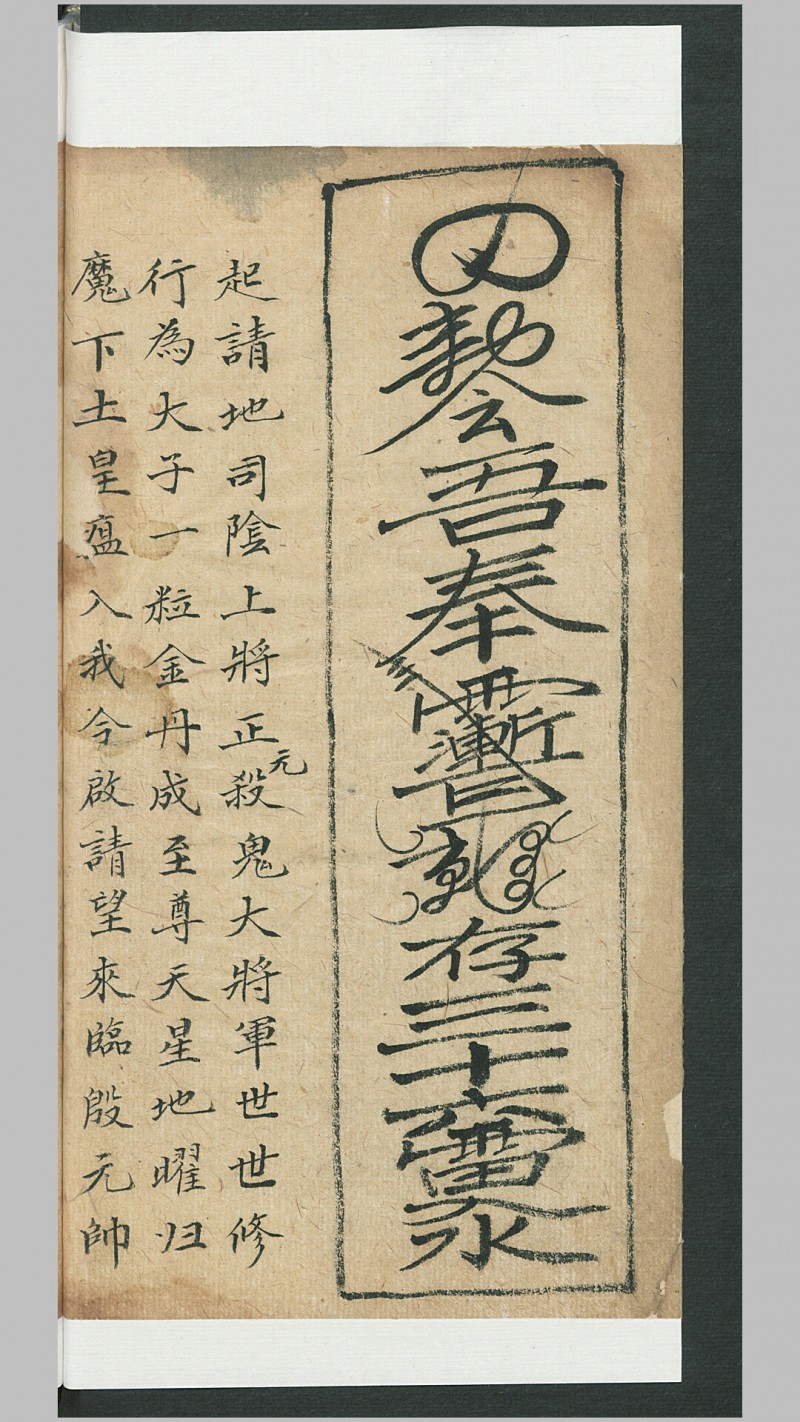 吾奉
存三十六雷
水
起請地司陰上將正元殺鬼大將軍世世修
行為大子一粒金丹成至尊天星地曜归
魔下土皇瘟入我今啟請望來臨殷元帥